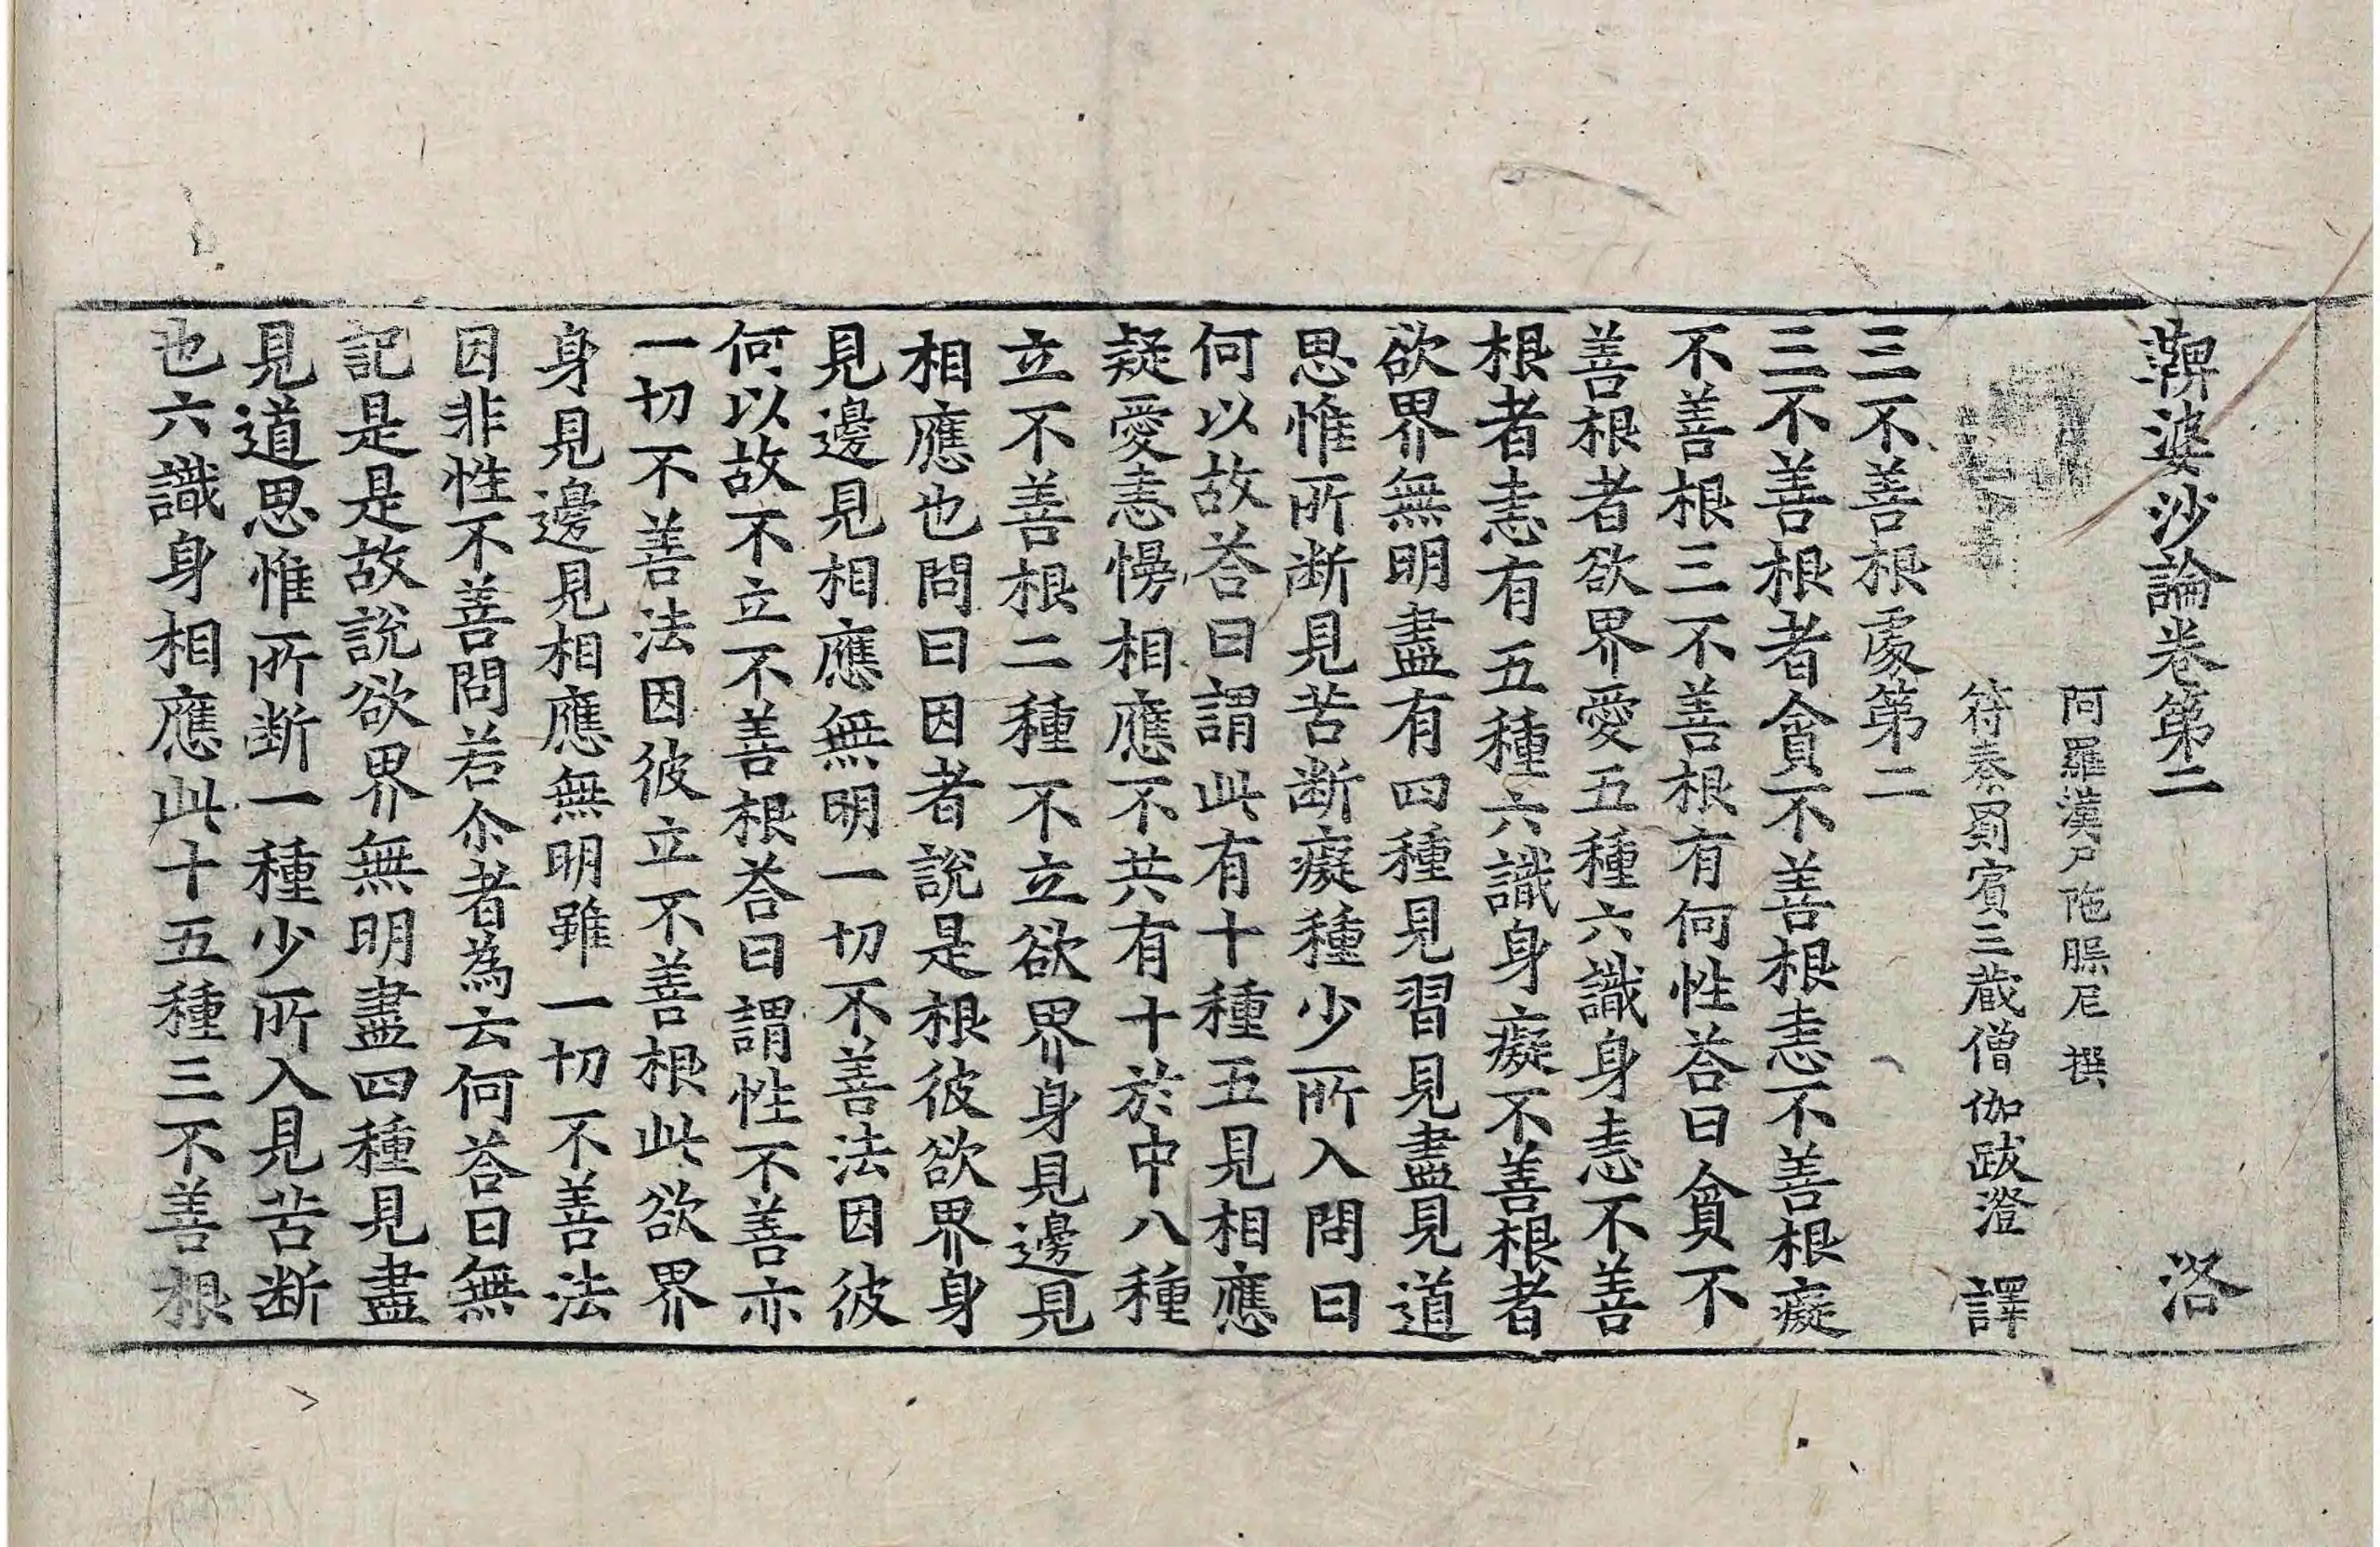 鞞婆沙論卷第二 洛
阿羅漢尸陁槃尼 撰
符秦罽賓三藏僧伽跋澄 譯
三不善根處第二
三不善根者貪不善根恚不善根癡
不善根三不善根有何性荅曰貪不
善根者欲界愛五種六識身恚不善
根者恚有五種六識身癡不善根者
欲界無明盡有四種見習見盡見道
思惟所断見苦断癡種少所入問曰
何以故荅曰謂此有十種五見相應
疑愛恚慢相應不共有十於中八種
立不善根二種不立欲界身見邊見
相應也問曰因者說是根彼欲界身
見邊見相應無明一切不善法因彼
何以故不立不善根荅曰謂性不善亦
一切不善法因彼立不善根此欲界
身見邊見相應無明雖一切不善法
因非性不善問若尒者為云何荅曰無
記是是故說欲界無明盡四種見盡
見道思惟所断一種少所入見苦断
也六識身相應此十五種三不善根